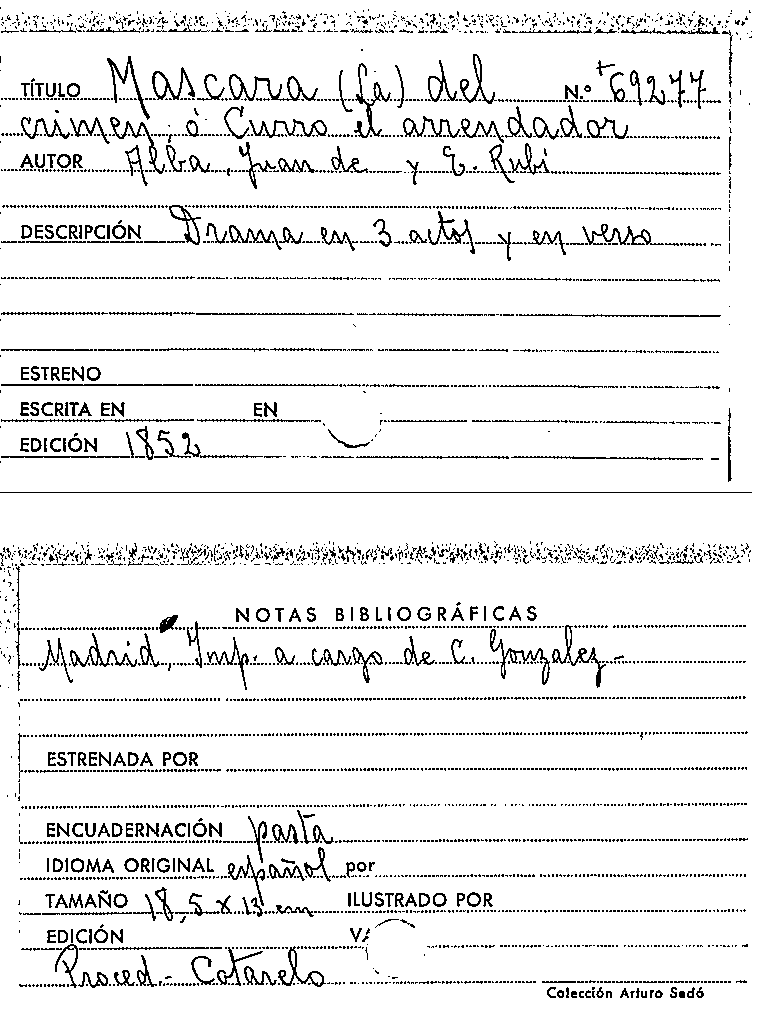 TÍTULO Mascara (la) del N.º +69277
crimen, ó Curro el arrendador
AUTOR Alba, Juan de y E. Rubi
DESCRIPCIÓN Drama en 3 actos y en verso
ESTRENO
ESCRITA EN EN
EDICIÓN 1852
NOTAS BIBLIOGRÁFICAS
Madrid, Imp. a cargo de C. Gonzalez-
ESTRENADA POR
ENCUADERNACIÓN pasta
IDIOMA ORIGINAL español por
TAMAÑO 18,5 x 13 cm ILUSTRADO POR
EDICIÓN
Proced.- Cotarelo
Colección Arturo Sedó